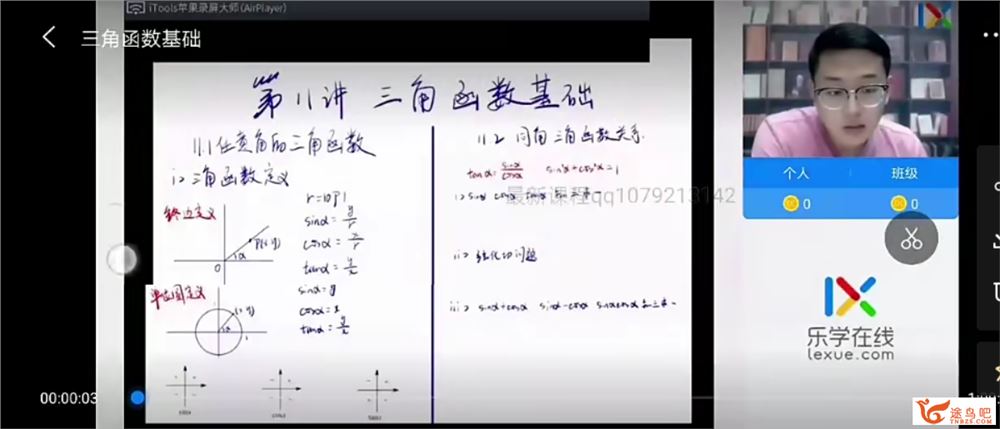 iTools苹果录屏大师(AirPlayer)
三角函数基础
第11讲 三角函数基础
11.1任意角的三角函数
i>三角函数定义
终边定义
P(x,y)
α
O
r=|OP|
sinα=y/r
cosα=x/r
tanα=y/x
单位圆定义
(x,y)
α
1
sinα=y
cosα=x
tanα=y/x
11.2 同角三角函数关系
tanα=sinα/cosα sin²α+cos²α=1
i>sinα cosα tanα
最新课程qq1079213142
ii>弦化切问题
iii>sinα+cosα sinα-cosα sinαcosα知三求一
个人 班级
0 0
乐学在线
lexue.com
00:00:03
途鸟吧
TNBZS.COM